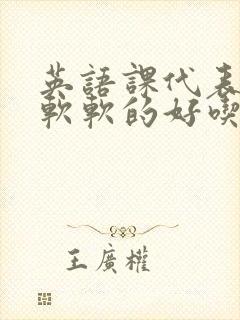 英語課代表
軟軟的好喫
王廣權